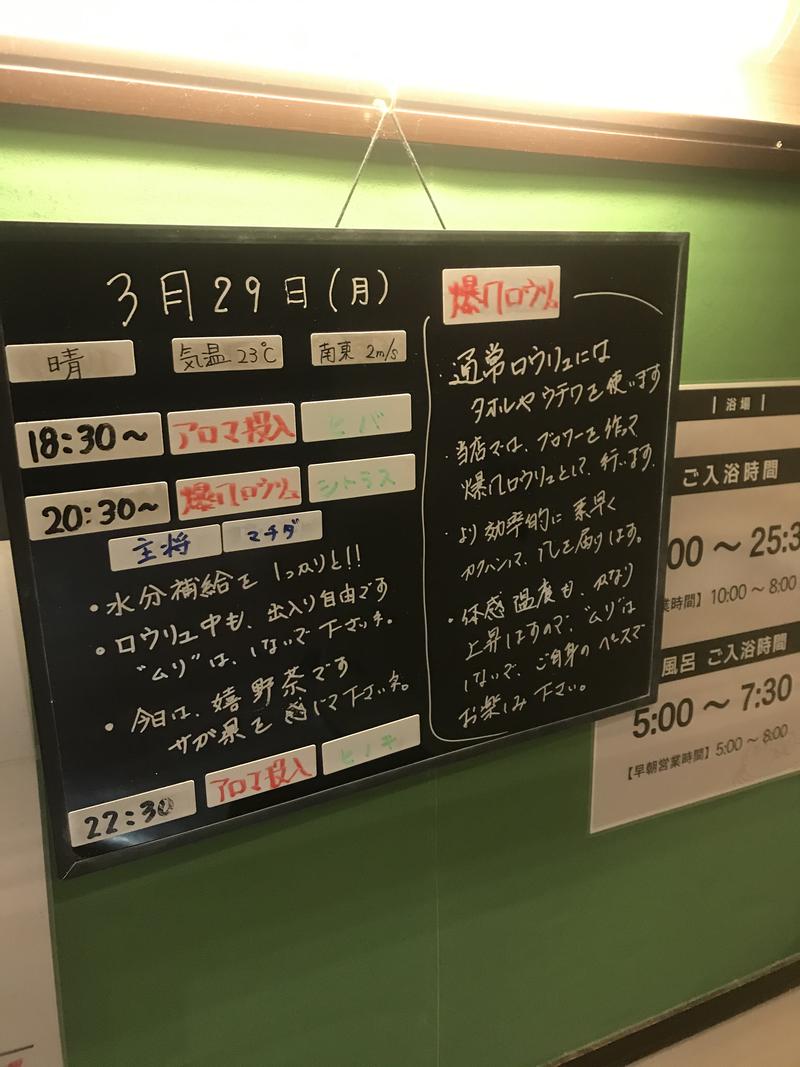 3月29日(月)
晴 気温23℃ 南東2m/s
18:30〜 アロマ投入 ヒバ
20:30〜 爆風ロウリュ シトラス
主将 マチダ
・水分補給をしっかりと!!
・ロウリュ中も、出入り自由です
"ムリ"は、しないで下さいネ。
・今日は、嬉野茶です
サガ県を感じて下さいネ。
22:30 アロマ投入 ヒノキ
爆風ロウリュ
・通常ロウリュには
タオルやウチワを使います
・当店では、ブロワーを使って
爆風ロウリュとして、行います。
・より効率的に素早く
カクハンして、届けます。
・体感温度も、かなり
上昇しますので、"ムリ"は
しないで、ご自身のペースで
お楽しみ下さい。
浴場
ご入浴時間
00 〜 25:3
業時間】10:00 〜 8:00
風呂 ご入浴時間
5:00 〜 7:30
【早朝営業時間】5:00 〜 8:00